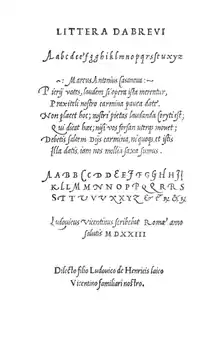 LITTERA DA BREVI
A a b c d e e f g g h i k l m n o p q r s t u x y z
~: Marcus Antonius Casanova :~
Pierij vates, laudem si opera ista merentur,
Praxiteli nostro carmina pauca date.
Non placet hoc; nostri pietas laudanda Coryti est;
Qui dicat haec; nisi vos forsan uterque movet;
Debetis saltem Dijs carmina, ni quoque et istis
Illa datis. iam nos mollia saxa sumus.
A A B B C C D D E E F F G G H H I J
K L L M M N N O P P Q Q R R S
S T T U V V X X Y Z & & &
Ludovicus Vicentinus scribebat Romae anno
salutis M D XXIII
Dilecto filio Ludovico de Henricis laico
Vicentino familiari nostro.